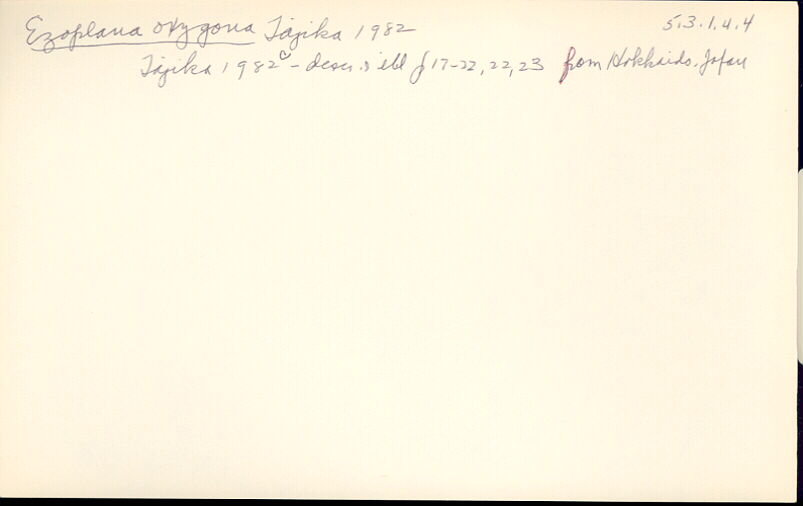 Ezoplana oxygona Tajika 1982 5.3.1.4.4
Tajika 1982c - descr. & ill f 17-22, 22, 23 from Hokkaido, Japan